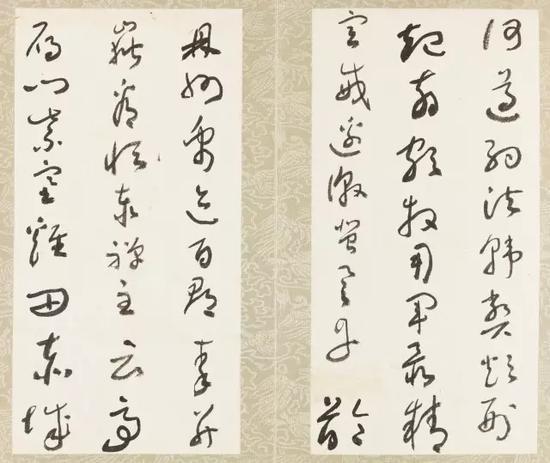 何遵約法韓弊煩刑
起翦頗牧用軍最精
宣威
州禹迹百郡秦并
嶽宗恒岱禪主云亭
雁門紫塞雞田赤城